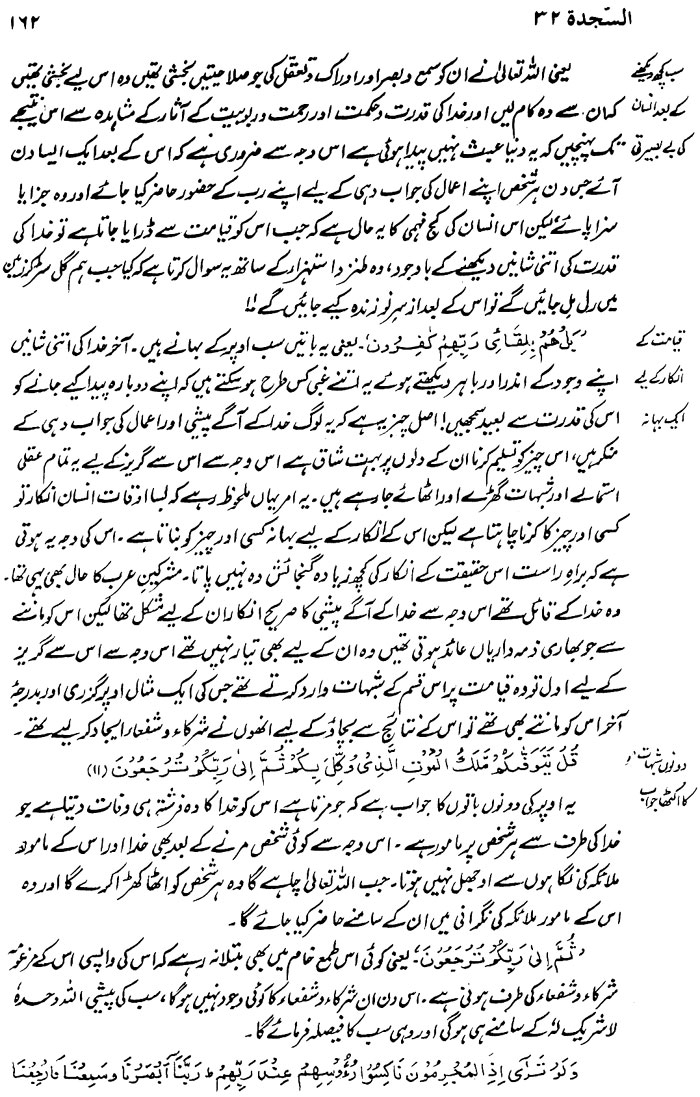 السّجدة ۳۲
۱۶۲
سب کچھ دیکھنے
کے بعد انسان
کی بے بصیرتی
یعنی اللہ تعالیٰ نے ان کو سمع و بصر اور ادراک و تعقل کی جو صلاحیتیں بخشی تھیں وہ اس لیے بخشی تھیں
کہ ان سے وہ کام لیں اور خدا کی قدرت و حکمت اور رحمت و ربوبیت کے آثار کے مشاہدہ سے اس نتیجے
تک پہنچیں کہ یہ دنیا عبث نہیں پیدا ہوئی ہے اس وجہ سے ضروری ہے کہ اس کے بعد ایک ایسا دن
آئے جس دن ہر شخص اپنے اعمال کی جواب دہی کے لیے اپنے رب کے حضور حاضر کیا جائے اور وہ جزا یا
سزا پائے لیکن اس انسان کی کج فہمی کا یہ حال ہے کہ جب اس کو قیامت سے ڈرایا جاتا ہے تو خدا کی
قدرت کی اتنی شانیں دیکھنے کے باوجود، وہ طنز و استہزاء کے ساتھ یہ سوال کرتا ہے کہ کیا جب ہم گل سڑ کر زمین
میں رل مل جائیں گے تو اس کے بعد از سر نو زندہ کیے جائیں گے!!
قیامت کے
انکار کے لیے
ایک بہانہ
'بَلْ هُمْ بِلِقَآئِ رَبِّهِمْ كٰفِرُوْنَ'۔ یعنی یہ باتیں سب اوپر کے بہانے ہیں۔ آخر خدا کی اتنی شانیں
اپنے وجود کے اندر اور باہر دیکھتے ہوئے یہ اتنے غبی کس طرح ہو سکتے ہیں کہ اپنے دوبارہ پیدا کیے جانے کو
اس کی قدرت سے بعید سمجھیں! اصل چیز یہ ہے کہ یہ لوگ خدا کے آگے پیشی اور اعمال کی جواب دہی کے
منکر ہیں، اس چیز کو تسلیم کرنا ان کے دلوں پر بہت شاق ہے اس وجہ سے اس سے گریز کے لیے یہ تمام عقلی
استحالے اور شبہات گھڑے اور اٹھائے جا رہے ہیں۔ یہ امر یہاں ملحوظ رہے کہ بسا اوقات انسان انکار تو
کسی اور چیز کا کرنا چاہتا ہے لیکن اس کے انکار کے لیے بہانہ کسی اور چیز کو بناتا ہے۔ اس کی وجہ یہ ہوتی
ہے کہ براہ راست اس حقیقت کے انکار کی کچھ زیادہ گنجائش وہ نہیں پاتا۔ مشرکین عرب کا حال بھی یہی تھا۔
وہ خدا کے قائل تھے اس وجہ سے خدا کے آگے پیشی کا صریح انکار ان کے لیے مشکل تھا لیکن اس کو ماننے
سے جو بھاری ذمہ داریاں عائد ہوتی تھیں وہ ان کے لیے بھی تیار نہیں تھے اس وجہ سے اس سے گریز
کے لیے اول تو وہ قیامت پر اس قسم کے شبہات وارد کرتے تھے جس کی ایک مثال اوپر گزری اور بدرجۂ
آخر اس کو مانتے بھی تھے تو اس کے نتائج سے بچاؤ کے لیے انھوں نے شرکاء و شفعاء ایجاد کر لیے تھے۔
دونوں شبہات
کا اکٹھا جواب
قُلْ يَتَوَفّٰىكُمْ مَّلَكُ الْمَوْتِ الَّذِيْ وُكِّلَ بِكُمْ ثُمَّ اِلٰى رَبِّكُمْ تُرْجَعُوْنَ (۱۱)
یہ اوپر کی دونوں باتوں کا جواب ہے کہ جو مرتا ہے اس کو خدا کا وہ فرشتہ ہی وفات دیتا ہے جو
خدا کی طرف سے ہر شخص پر مامور ہے۔ اس وجہ سے کوئی شخص مرنے کے بعد بھی خدا اور اس کے مامور
ملائکہ کی نگاہوں سے اوجھل نہیں ہوتا۔ جب اللہ تعالیٰ چاہے گا وہ ہر شخص کو اٹھا کھڑا کرے گا اور وہ
اس کے مامور ملائکہ کی نگرانی میں ان کے سامنے حاضر کیا جائے گا۔
'ثُمَّ اِلٰى رَبِّكُمْ تُرْجَعُوْنَ'، یعنی کوئی اس طمع خام میں بھی مبتلا نہ رہے کہ اس کی واپسی اس کے مزعومہ
شرکاء و شفعاء کی طرف ہونی ہے۔ اس دن ان شرکاء و شفعاء کا کوئی وجود نہیں ہوگا، سب کی پیشی اللہ وحدہٗ
لا شریک لہٗ کے سامنے ہی ہوگی اور وہی سب کا فیصلہ فرمائے گا۔
وَلَوْ تَرٰٓى اِذِ الْمُجْرِمُوْنَ نَاكِسُوْا رُءُوْسِهِمْ عِنْدَ رَبِّهِمْ ۭ رَبَّنَآ اَبْصَرْنَا وَسَمِعْنَا فَارْجِعْنَا